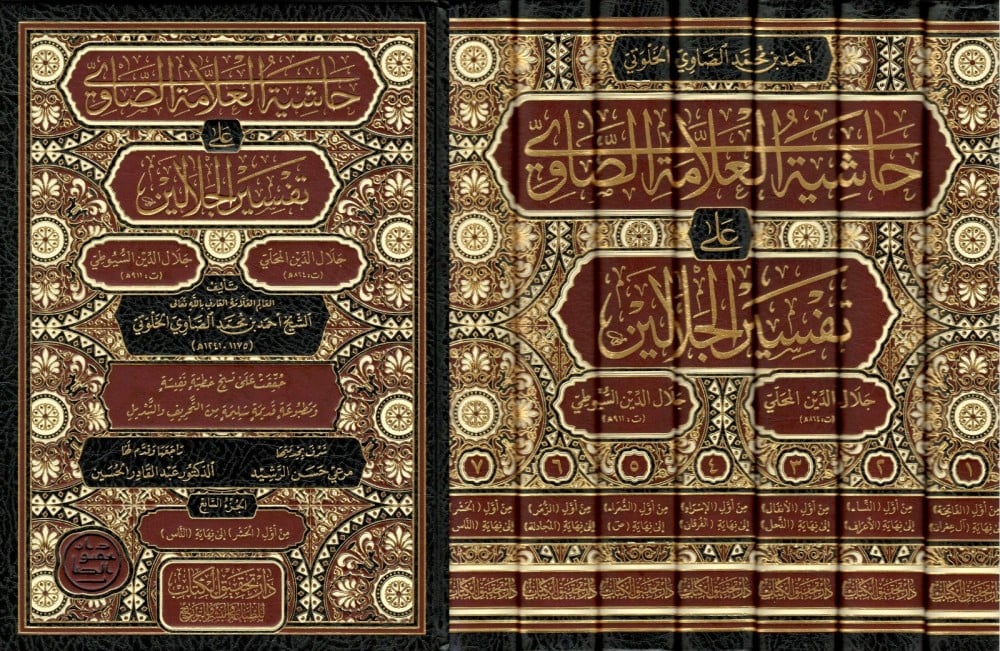 حاشية العلامة الصاوي
على
تفسير الجلالين
جلال الدين المحلي
(ت: ٨٦٤هـ)
جلال الدين السيوطي
(ت: ٩١١هـ)
تأليف
العالم العلامة العارف بالله تعالى
الشيخ أحمد بن محمد الصاوي الخلوتي
(١١٧٥-١٢٤١هـ)
حُقِّقَتْ عَلَى نُسَخٍ خَطِّيَّةٍ نَفِيسَةٍ
وَمَطْبُوعَةٍ قَدِيمَةٍ سَلِيمَةٍ مِنَ التَّحْرِيفِ وَالتَّبْدِيلِ
تشرف بخدمتها
مرعي حسن الرشيد
راجعها وقدم لها
الدكتور عبد القادر الحسين
الجزء السابع
من أول (الحشر) إلى نهاية (الناس)
دار تحقيق الكتاب
للطباعة والنشر والتوزيع
أحمد بن محمد الصاوي الخلوتي
حاشية العلامة الصاوي
على
تفسير الجلالين
جلال الدين المحلي
(ت: ٨٦٤هـ)
جلال الدين السيوطي
(ت: ٩١١هـ)
١ ٢ ٣ ٤ ٥ ٦ ٧
من أول (الفاتحة)
إلى نهاية (آل عمران)
من أول (النساء)
إلى نهاية (الأعراف)
من أول (الأنفال)
إلى نهاية (النحل)
من أول (الإسراء)
إلى نهاية (الفرقان)
من أول (الشعراء)
إلى نهاية (ص)
من أول (الزمر)
إلى نهاية (المجادلة)
من أول (الحشر)
إلى نهاية (الناس)
دار تحقيق الكتاب
دار تحقيق الكتاب
دار تحقيق الكتاب
دار تحقيق الكتاب
دار تحقيق الكتاب
دار تحقيق الكتاب
دار تحقيق الكتاب